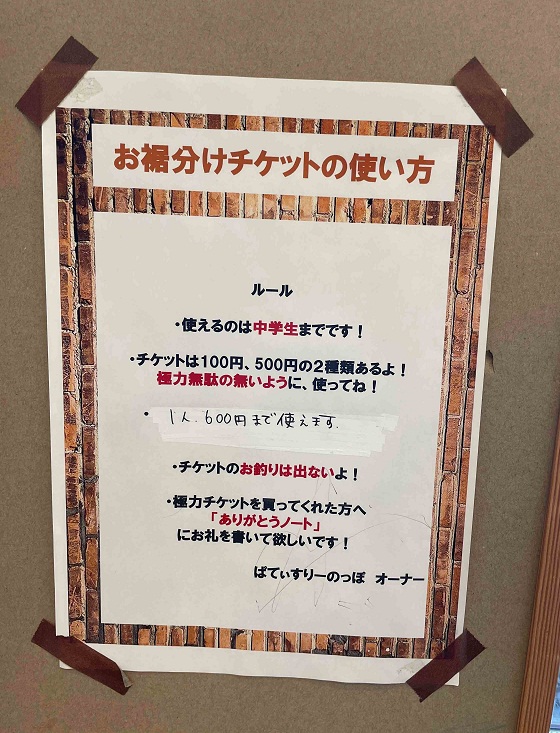 お裾分けチケットの使い方
ルール
・使えるのは中学生までです！
・チケットは100円、500円の2種類あるよ！
極力無駄の無いように、使ってね！
・1人.600円まで使えます.
・チケットのお釣りは出ないよ！
・極力チケットを買ってくれた方へ
「ありがとうノート」
にお礼を書いて欲しいです！
ぱてぃすりーのっぽ オーナー